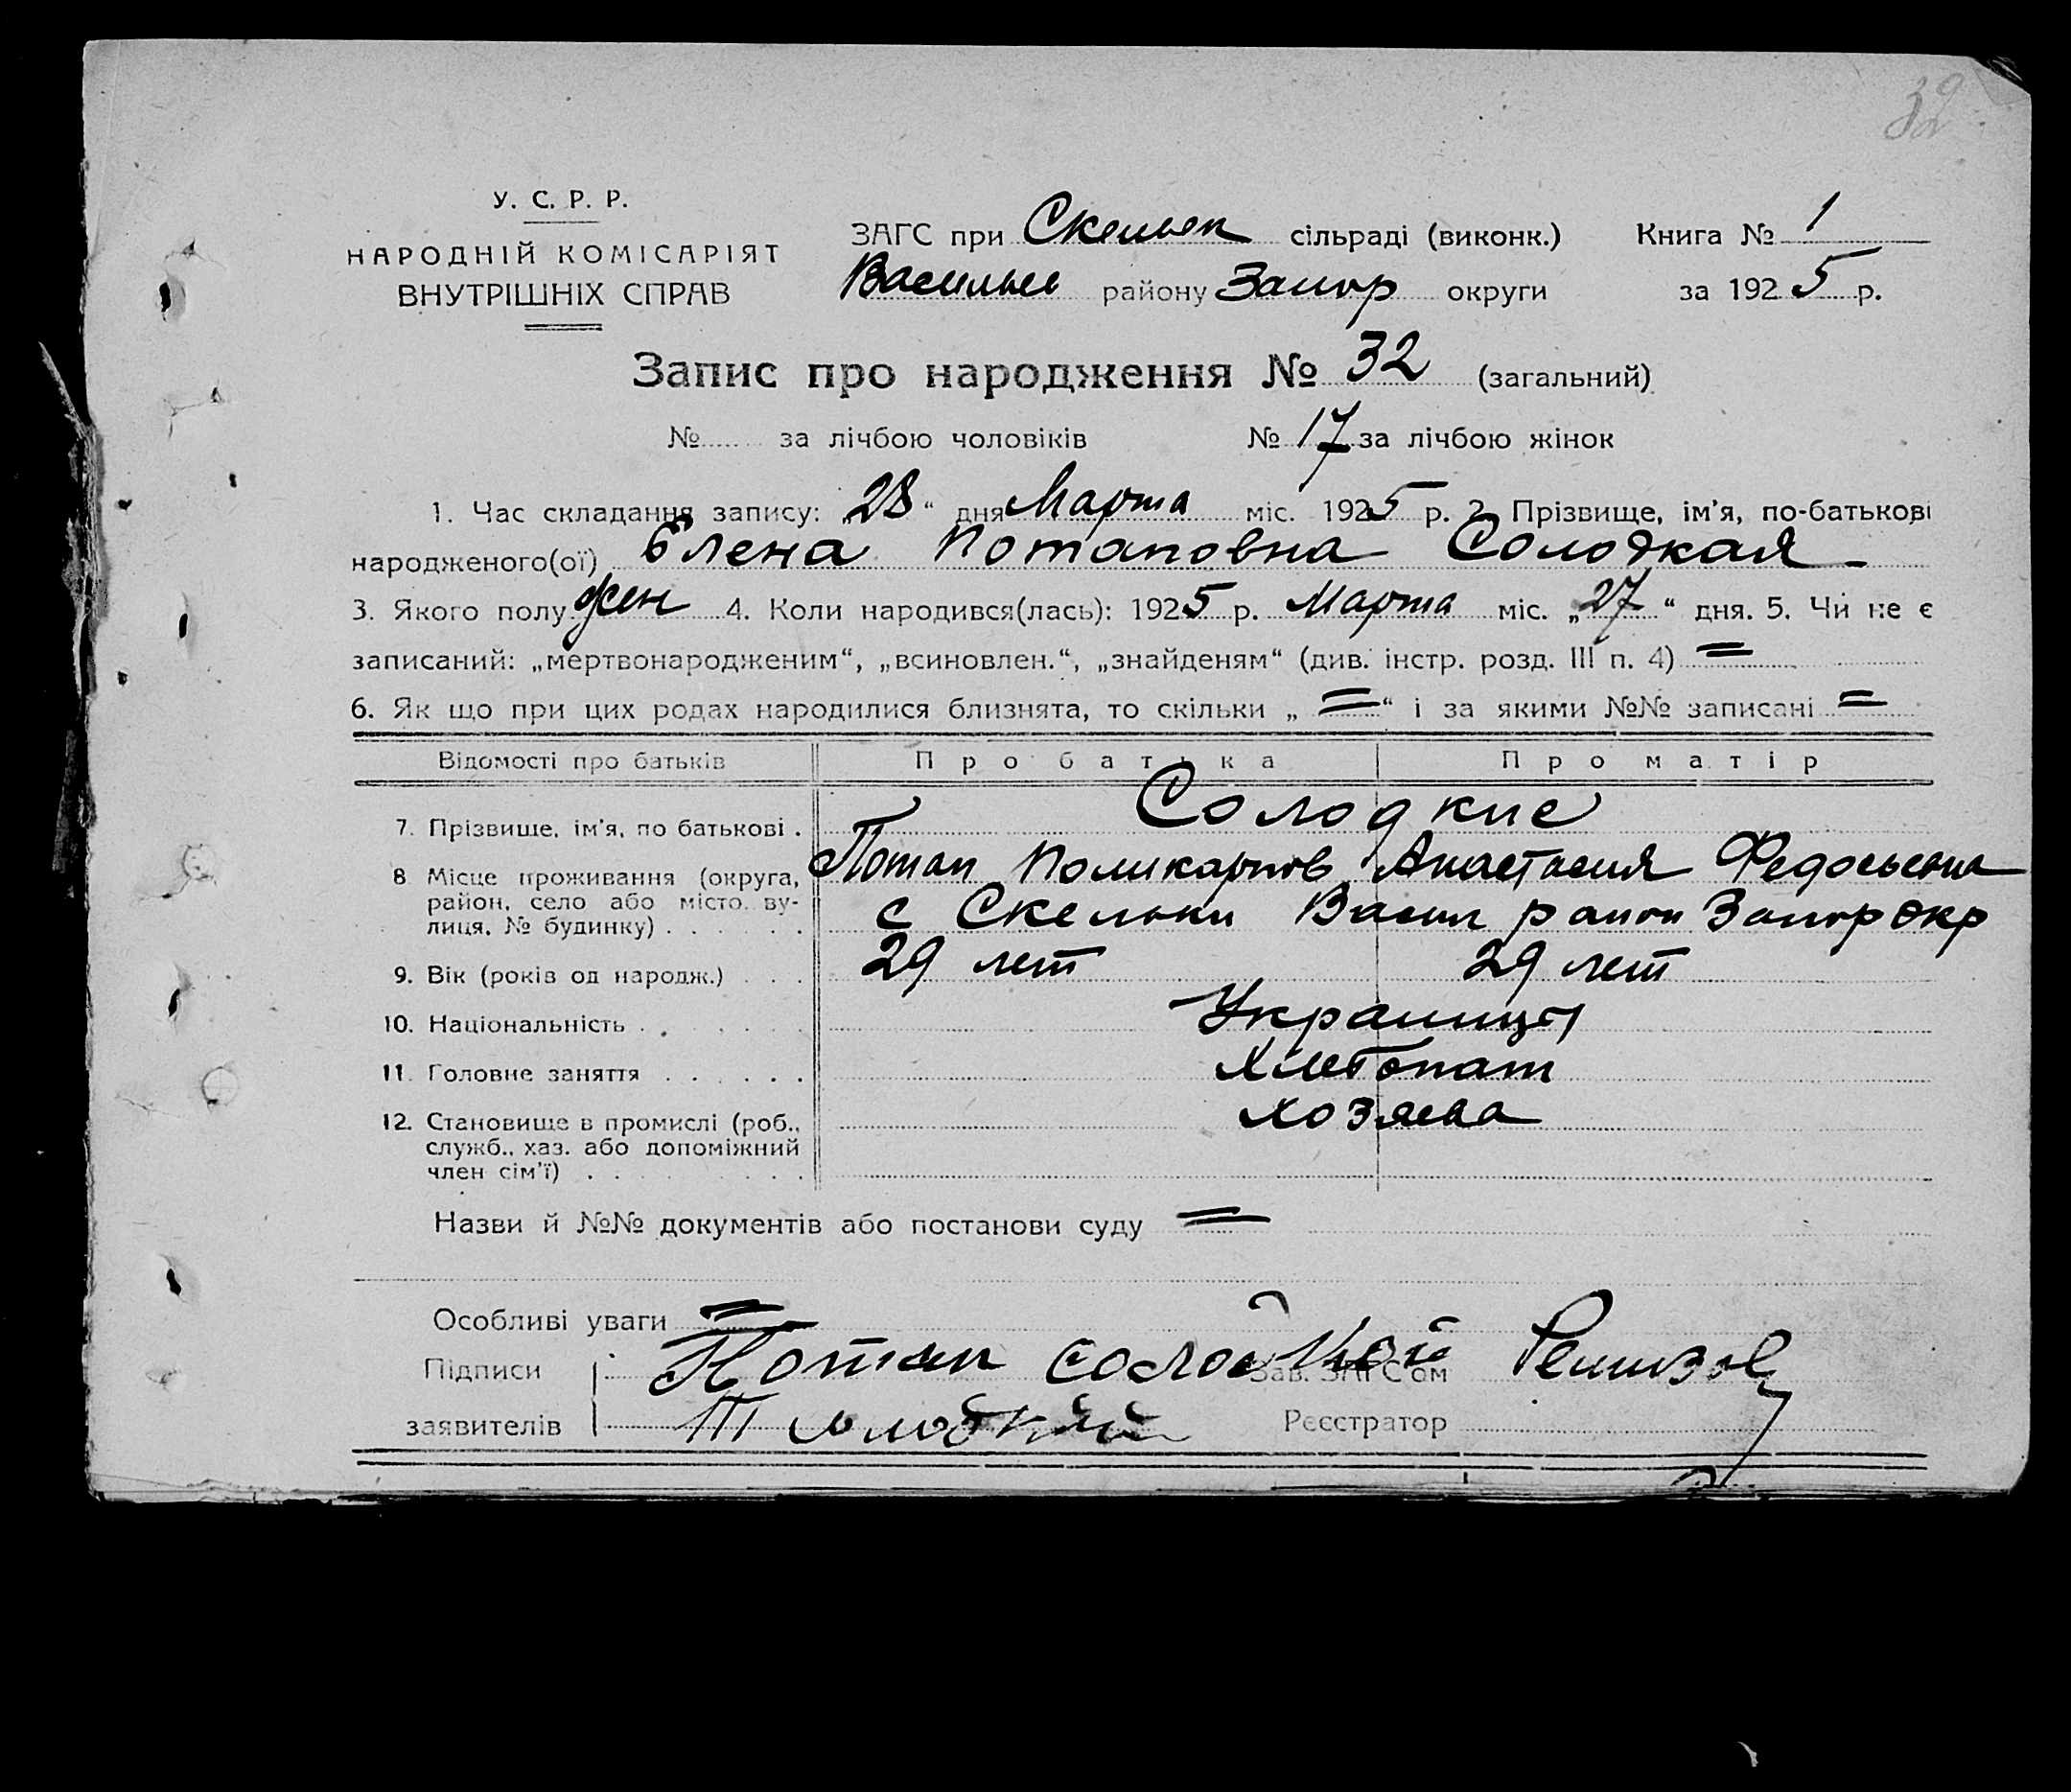 32
У. С. Р. Р.
НАРОДНІЙ КОМІСАРІЯТ
ВНУТРІШНІХ СПРАВ
ЗАГС при Скельек сільраді (виконк.) Книга № 1
Васильев району Запор округи за 1925 р.
Запис про народження № 32 (загальний)
№ за лічбою чоловіків № 17 за лічбою жінок
1. Час складання запису: „28“ дня Марта міс. 1925 р. 2. Прізвище, ім'я, по-батькові
народженого(ої) Елена Потаповна Солодкая
3. Якого полу жен 4. Коли народився(лась): 1925 р. Марта міс. „27“ дня. 5. Чи не є
записаний: „мертвонародженим“, „всиновлен.“, „знайденям“ (див. інстр. розд. III п. 4) =
6. Як що при цих родах народилися близнята, то скільки „=“ і за якими №№ записані =
Відомості про батьків Про батька Про матір
7. Прізвище, ім'я, по батькові . Солодкие
Потап Поликарпов Анастасия Федосьевна
8 Місце проживання (округа,
район, село або місто, ву-
лиця, № будинку) . . . . . . с Скельки Васил район Запор окр
9. Вік (років од народж.) . . . 29 лет 29 лет
10. Національність . . . . . Украинцы
11. Головне заняття . . . . . . Хлебопаш
12. Становище в промислі (роб.,
служб., хаз. або допоміжний
член сім'ї) . . . . . . . . . хозяева
Назви й №№ документів або постанови суду =
Особливі уваги =
Підписи Потап Солодкой Зав. ЗАГС'ом
заявителів Солодкий Реєстратор